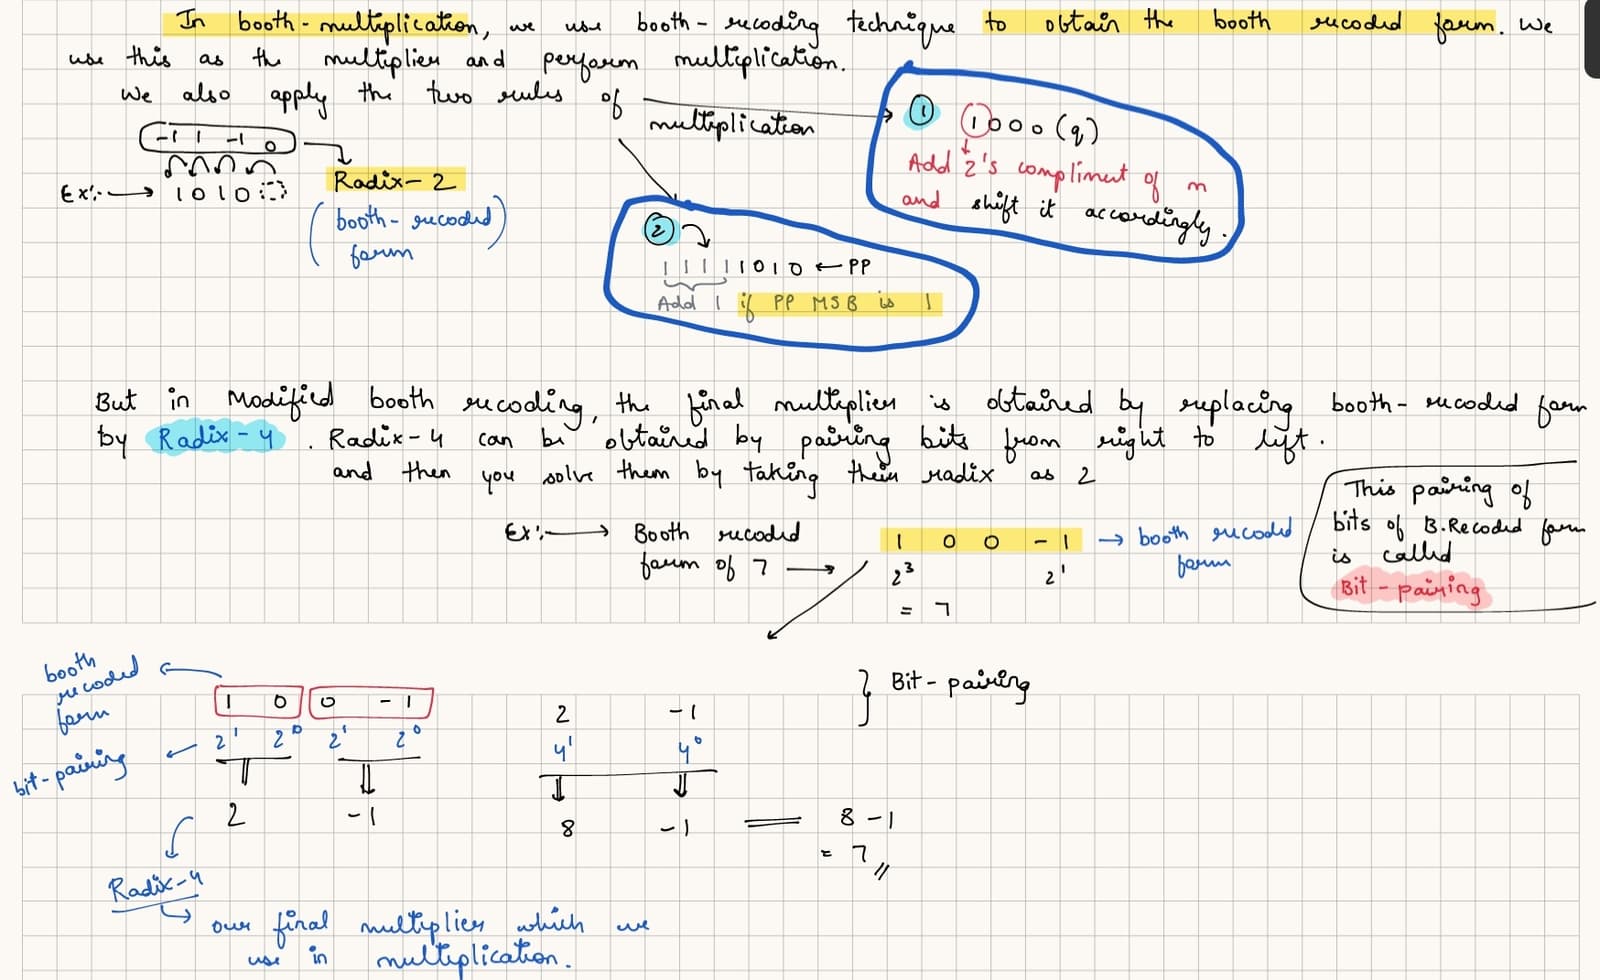 In booth-multiplication, we use booth-recoding technique to obtain the booth recoded form. We
use this as the multiplier and perform multiplication.
We also apply the two rules of multiplication
① 1000 (q)
Add 2's compliment of m
and shift it accordingly.
-1 1 -1 0
Ex:- → 1010
Radix-2
(booth-recoded
form)
②
111111010 ← PP
Add 1 if PP MSB is 1
But in Modified booth recoding, the final multiplier is obtained by replacing booth-recoded form
by Radix-4. Radix-4 can be obtained by pairing bits from right to left.
and then you solve them by taking their radix as 2
This pairing of
bits of B.Recoded form
is called
Bit-pairing
Ex:- → Booth recoded
form of 7 →
1 0 0 -1 → booth recoded
form
2³ 2¹
= 7
booth
recoded
form
1 0 0 -1
bit-pairing
2¹ 2⁰ 2¹ 2⁰
2 -1
2 -1
4¹ 4⁰
8 -1
} Bit-pairing
8 -1
= 7 //
Radix-4
our final multiplier which we
use in multiplication.